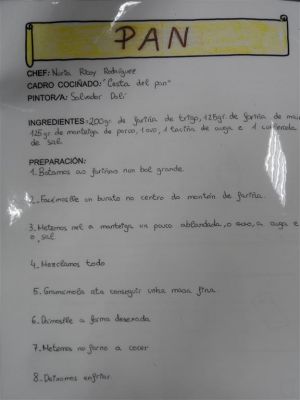 PAN
CHEF: Nuria Rboy Rodríguez
CADRO COCIÑADO: "Cesta del pan"
PINTOR/A: Salvador Dalí
INGREDIENTES: 200gr de fariña de trigo, 125gr de fariña de
125gr de manteiga de porco, 1 ovo, 1 taciña de auga e 1 cullerada
de sal.
PREPARACIÓN:
1. Botamos as fariñas nun bol grande.
2. Facémoslle un burato no centro do montón de fariña.
3. Metemos nel a manteiga un pouco ablandada, o ovo, a auga e
o sal.
4. Mezclamos todo
5. Amasamola ata conseguir unha masa fina.
6. Dámoslle a forma desexada
7. Metemos no forno a cocer
8. Deixamos enfriar.